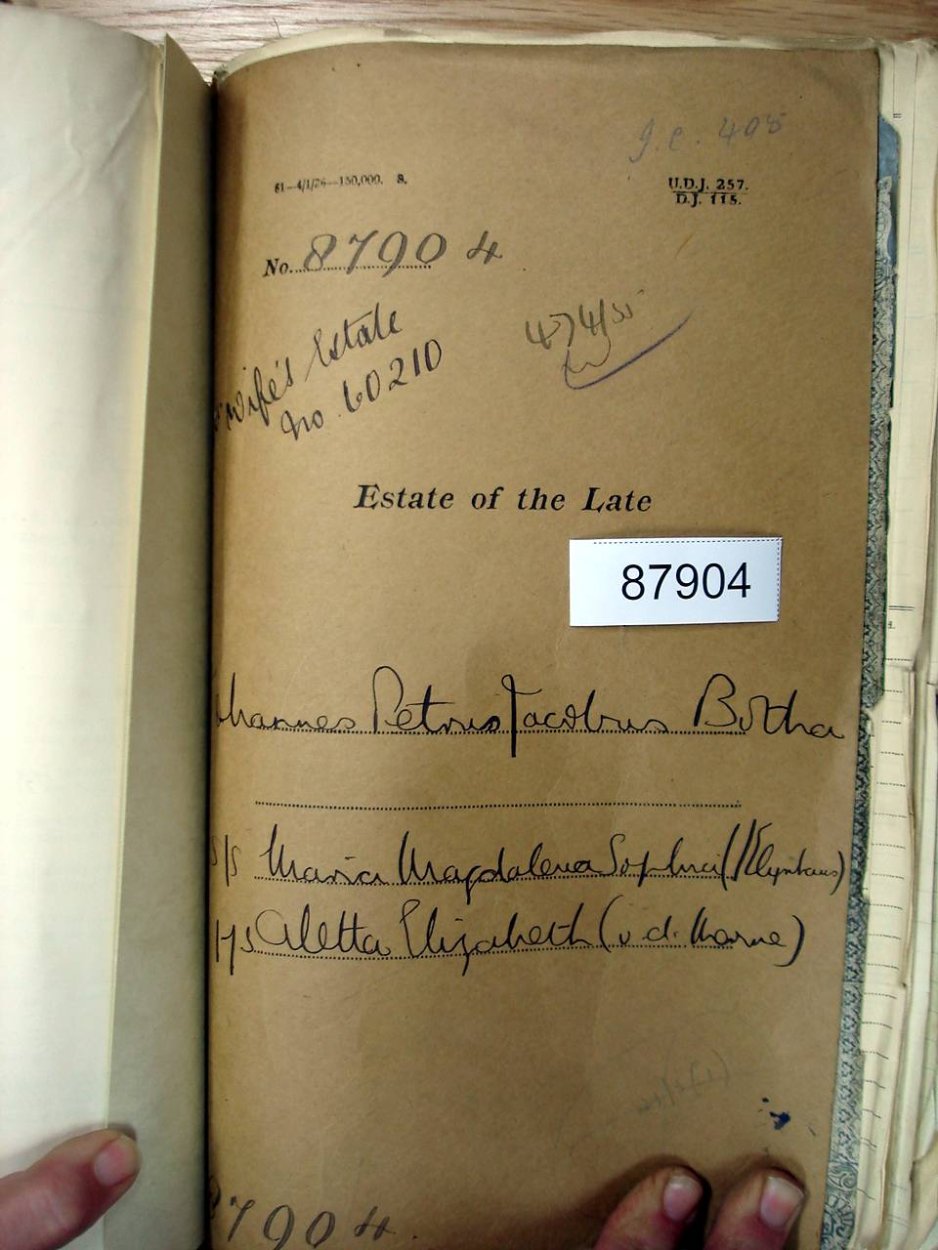 J.C. 405
61—4/1/26—150,000. S.
U.D.J. 257.
D.J. 115.
No. 87904
Wife's Estate
No 60210
474/35
Estate of the Late
87904
ohannes Petrus Jacobus Botha
S/S Maria Magdalena Sophia (Kleynhans)
Aletta Elizabeth (v.d. Marne)
87904.